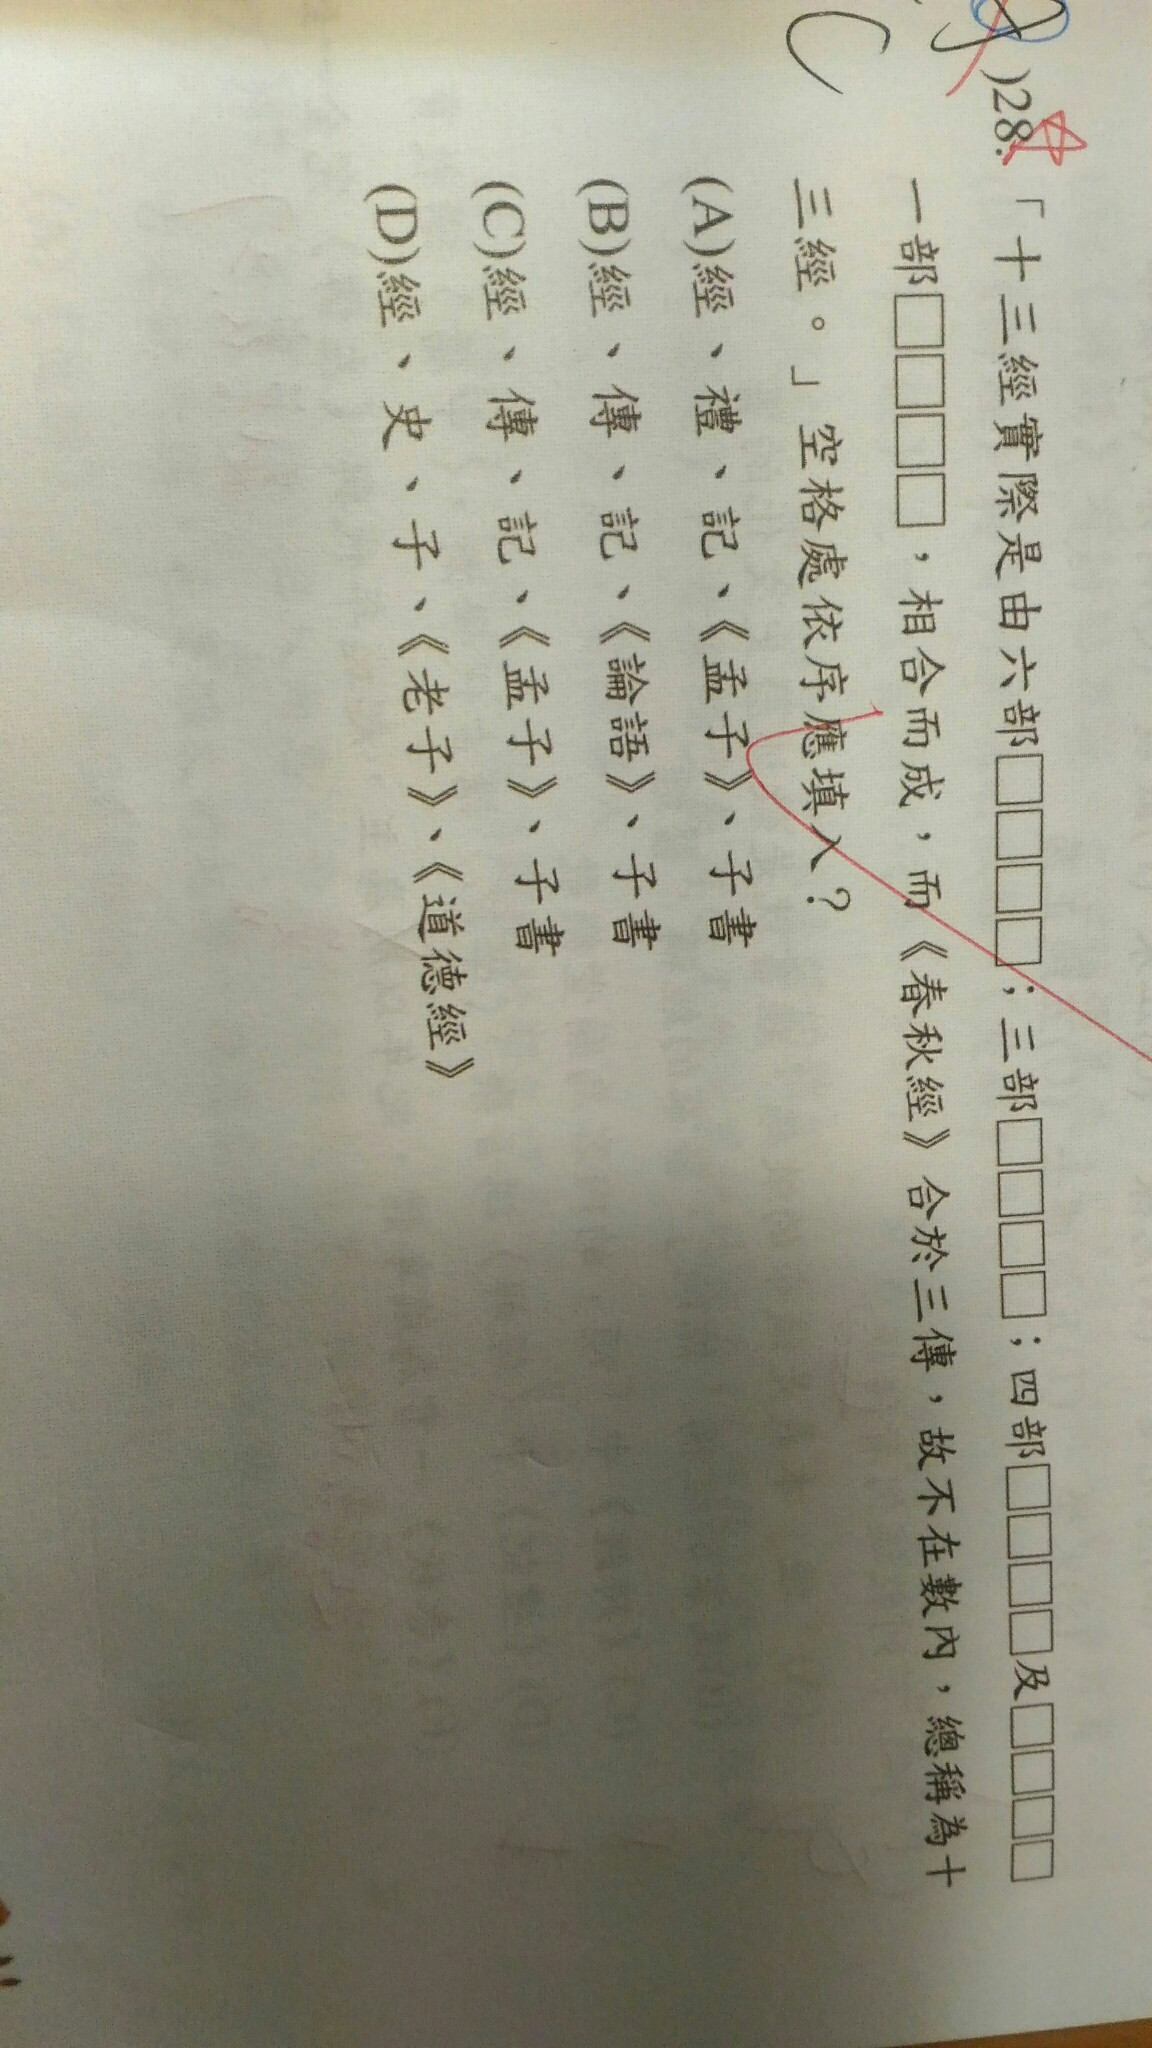 )28.「十三經實際是由六部□□□□;三部□□□□;四部□□□□及□□□□
一部□□□□,相合而成,而《春秋經》合於三傳,故不在數內,總稱為十
三經。」空格處依序應填入?
(A)經、禮、記、《孟子》、子書
(B)經、傳、記、《論語》、子書
(C)經、傳、記、《孟子》、子書
(D)經、史、子、《老子》、《道德經》
C